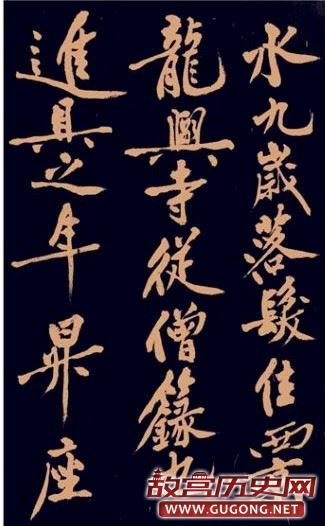 水九歲落髮住西
龍興寺從僧籙
進具之年昇座
故宫历史网
WWW.GUGONG.NET